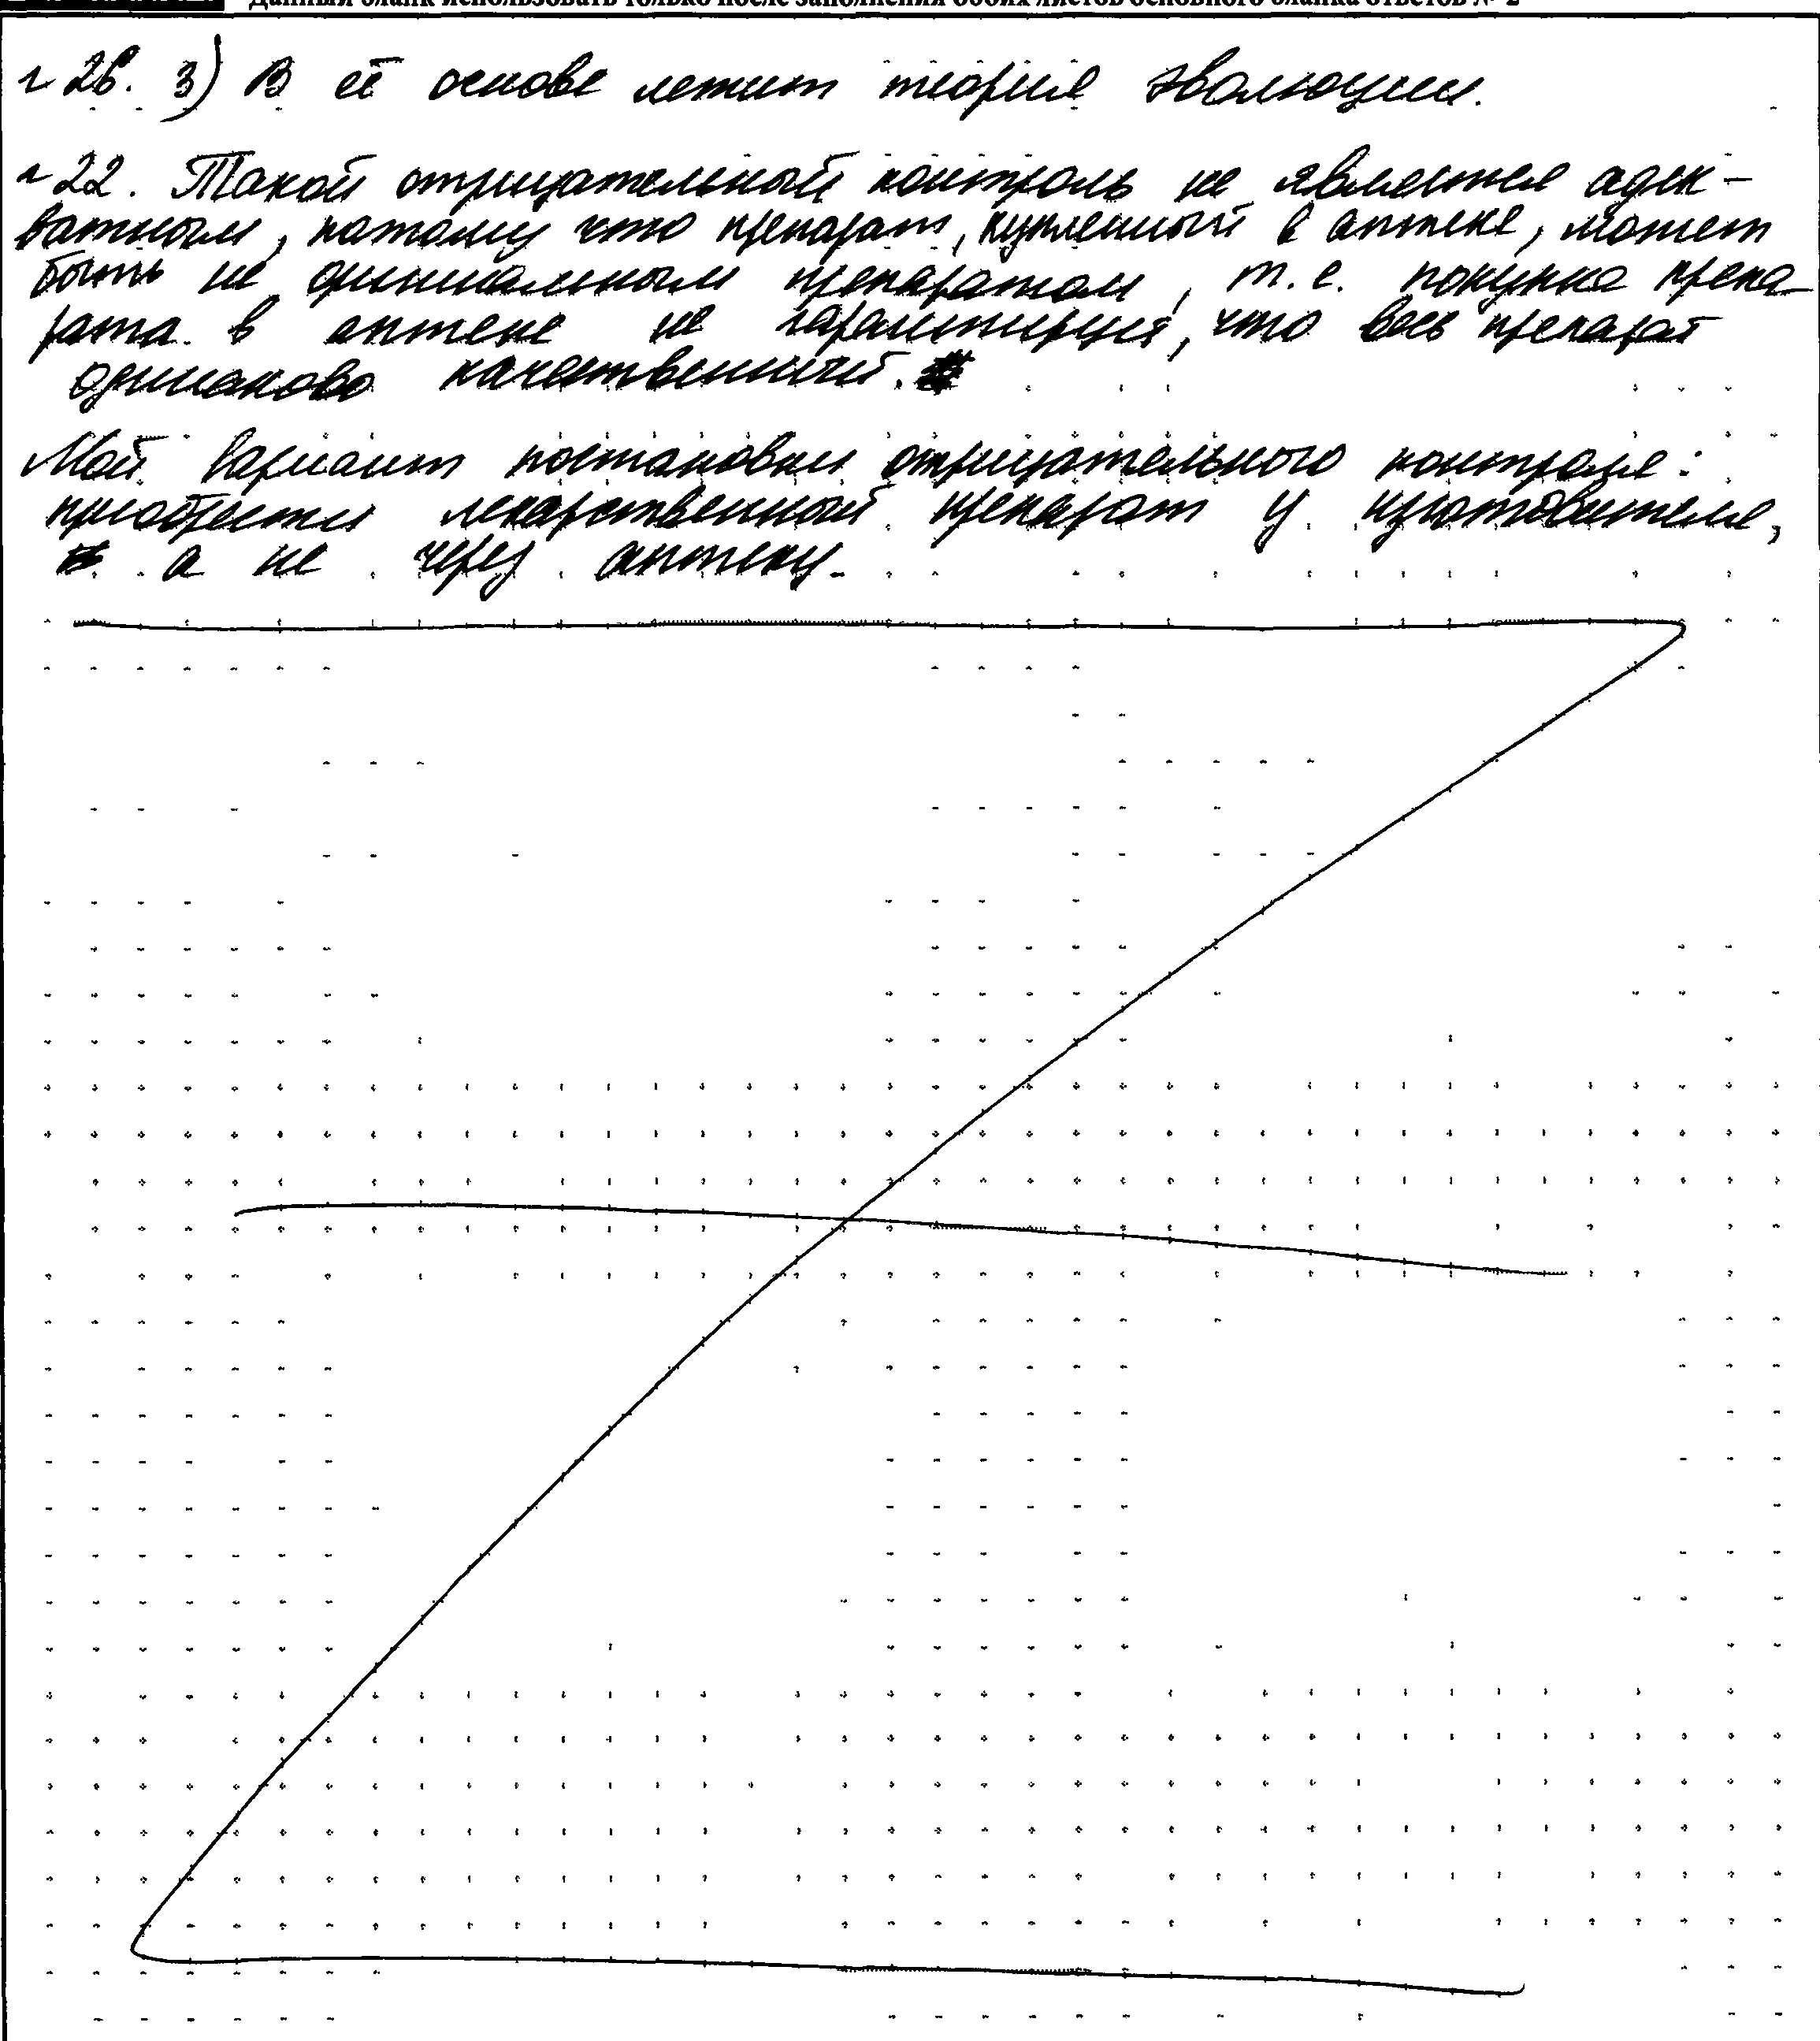 Данный бланк использовать только после заполнения обоих листов основного бланка ответов № 2
№ 26. 3) В её основе лежит теория эволюции.
№ 22. Такой отрицательный контроль не является адек-
ватным, потому что препарат, купленный в аптеке, может
быть не оригинальным препаратом, т.е. покупка препа-
рата в аптеке не гарантирует, что весь препарат
одинаково качественный.
Мой вариант постановки отрицательного контроля:
приобрести лекарственный препарат у изготовителя,
а не через аптеку.